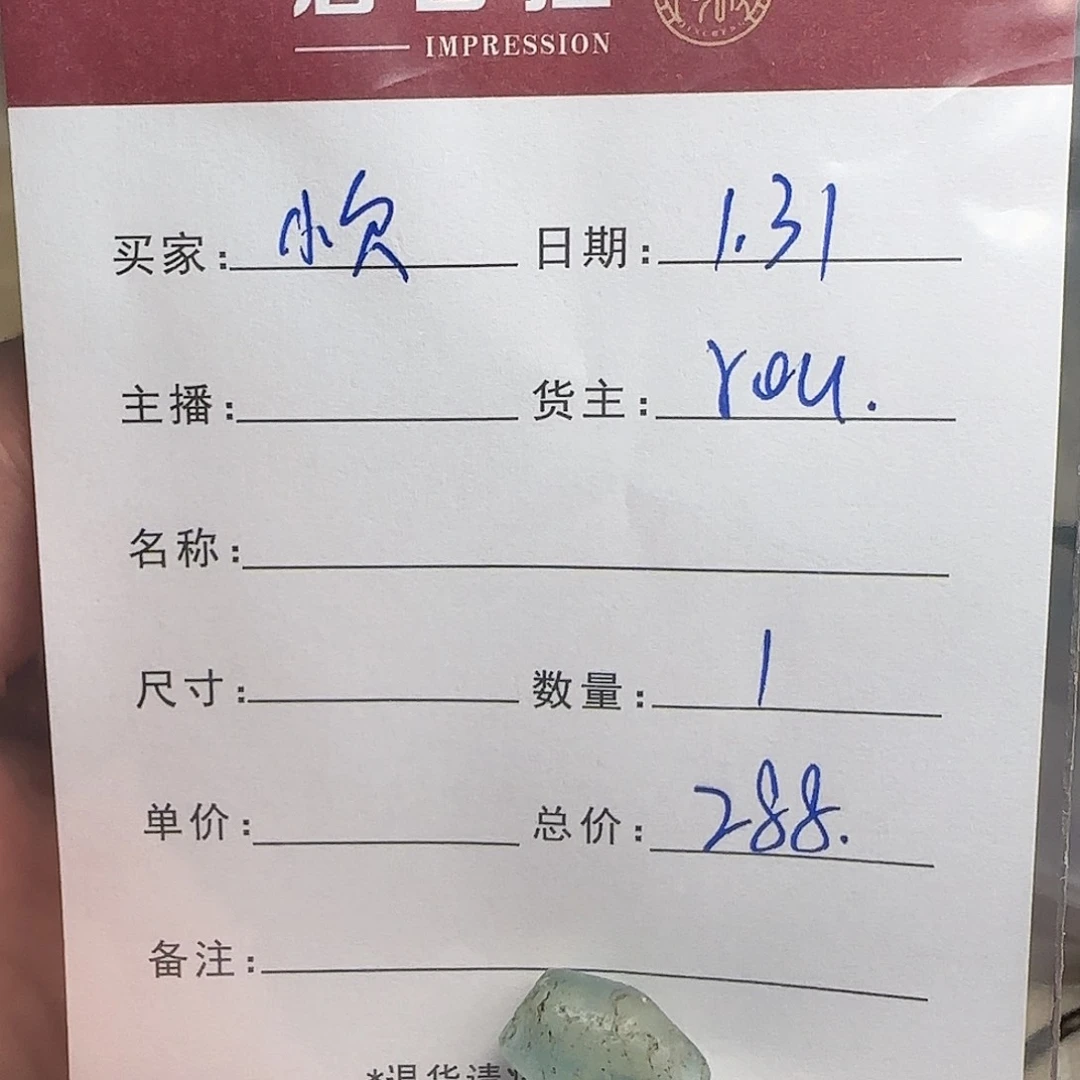 IMPRESSION
买家: 小欠 日期: 1.31
主播: 货主: You.
名称:
尺寸: 数量: 1
单价: 总价: 288.
备注:
*退货请